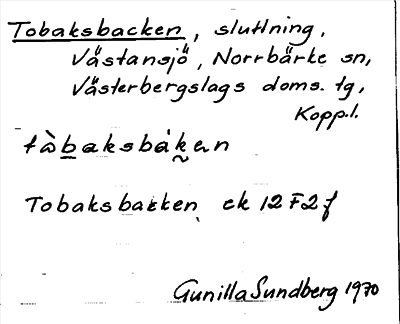 Tobaksbacken, sluttning,
Västansjö, Norrbärke sn,
Västerbergslags doms. tg,
Kopp.l.
tàbaksbákan
Tobaksbacken ek 12 F2f
Gunilla Sundberg 1970